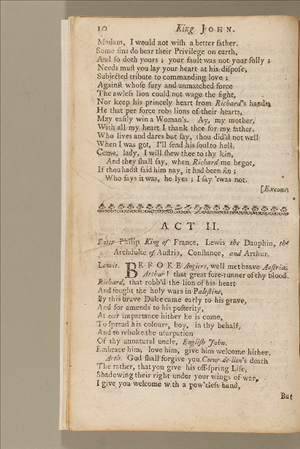 10 King JOHN.
Madam, I would not wish a better father.
Some sins do bear their Privilege on earth,
And so doth yours; your fault was not your folly;
Needs must you lay your heart at his dispose,
Subjected tribute to commanding love;
Against whose fury and unmatched force
The awless lion could not wage the fight,
Nor keep his princely heart from Richard's hands.
He that per force robs lions of their hearts,
May easily win a Woman's. Ay, my mother,
With all my heart I thank thee for my father.
Who lives and dares but say, thou didst not well
When I was got, I'll send his soul to hell.
Come, lady, I will shew thee to thy kin,
And they shall say, when Richard me begot,
If thou hadst said him nay, it had been sin;
Who says it was, he lyes; I say 'twas not.
[Exeunt.
ACT II.
Enter Philip King of France, Lewis the Dauphin, the
Archduke of Austria, Constance, and Arthur.
Lewis. BEFORE Angiers, well met brave Austria:
Arthur! that great fore-runner of thy blood,
Richard, that robb'd the lion of his heart
And fought the holy wars in Palestine,
By this brave Duke came early to his grave,
And for amends to his posterity,
At our importance hither he is come,
To spread his colours, boy, in thy behalf,
And to rebuke the usurpation
Of thy unnatural uncle, English John.
Embrace him, love him, give him welcome hither.
Arth. God shall forgive you Coeur-de-lion's death
The rather, that you give his off-spring Life,
Shadowing their right under your wings of war.
I give you welcome with a pow'rless hand,
But